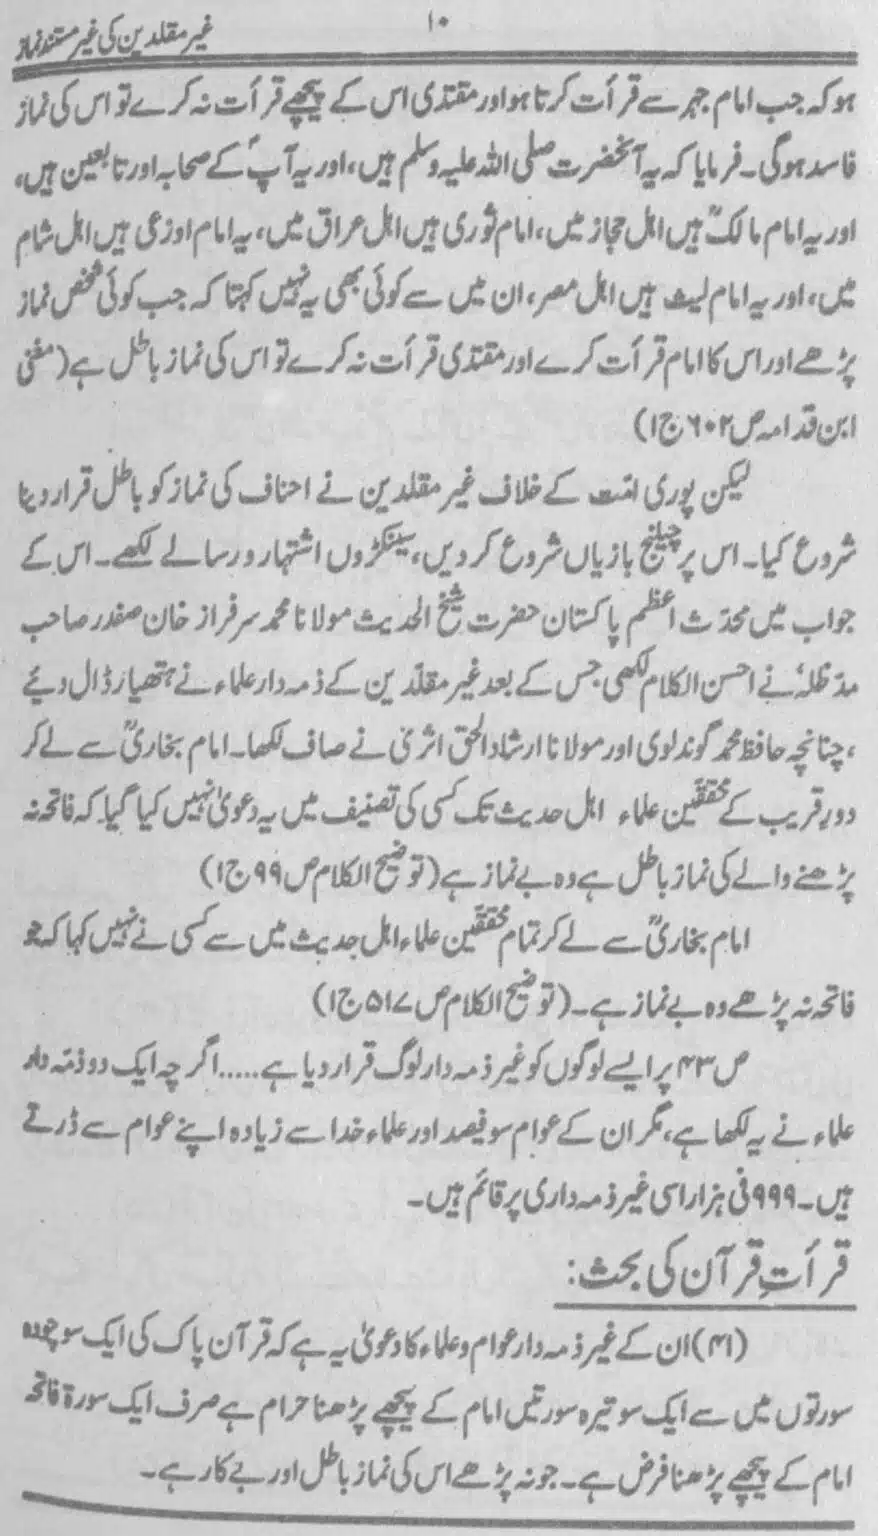 ۱۰
غیر مقلدین کی غیر مستند نماز
ہو کہ جب امام جہر سے قرأت کرتا ہو اور مقتدی اس کے پیچھے قرأت نہ کرے تو اس کی نماز
فاسد ہوگی۔ فرمایا کہ یہ آنحضرت صلی اللہ علیہ وسلم ہیں، اور یہ آپؐ کے صحابہ اور تابعین ہیں،
اور یہ امام مالکؒ ہیں اہل حجاز میں، امام ثوری ہیں اہل عراق میں، یہ امام اوزعی ہیں اہل شام
میں، اور یہ امام لیث ہیں اہل مصر، ان میں سے کوئی بھی یہ نہیں کہتا کہ جب کوئی شخص نماز
پڑھے اور اس کا امام قرأت کرے اور مقتدی قرأت نہ کرے تو اس کی نماز باطل ہے (مغنی
ابن قدامہ ص ۶۰۲ ج۱)
لیکن پوری امت کے خلاف غیر مقلدین نے احناف کی نماز کو باطل قرار دینا
شروع کیا۔ اس پر چیلنج بازیاں شروع کر دیں، سینکڑوں اشتہار و رسالے لکھے۔ اس کے
جواب میں محدّث اعظم پاکستان حضرت شیخ الحدیث مولانا محمد سرفراز خان صفدر صاحب
مدّظلہٗ نے احسن الکلام لکھی جس کے بعد غیر مقلّدین کے ذمہ دار علماء نے ہتھیار ڈال دیئے
، چنانچہ حافظ محمد گوندلوی اور مولانا ارشاد الحق اثری نے صاف لکھا۔ امام بخاریؒ سے لے کر
دورِ قریب کے محققّین علماء اہل حدیث تک کسی کی تصنیف میں یہ دعویٰ نہیں کیا گیا کہ فاتحہ نہ
پڑھنے والے کی نماز باطل ہے وہ بے نماز ہے (توضیح الکلام ص ۹۹ ج۱)
امام بخاریؒ سے لے کر تمام محققّین علماء اہل حدیث میں سے کسی نے نہیں کہا کہ جو
فاتحہ نہ پڑھے وہ بے نماز ہے۔ (توضیح الکلام ص ۵۱۷ ج۱)
ص ۴۳ پر ایسے لوگوں کو غیر ذمہ دار لوگ قرار دیا ہے.....اگر چہ ایک دو ذمّہ دار
علماء نے یہ لکھا ہے، مگر ان کے عوام سو فیصد اور علماء خدا سے زیادہ اپنے عوام سے ڈرتے
ہیں۔ ۹۹۹ فی ہزار اسی غیر ذمہ داری پر قائم ہیں۔
قرأتِ قرآن کی بحث:
(۴۱) ان کے غیر ذمہ دار عوام و علماء کا دعویٰ یہ ہے کہ قرآن پاک کی ایک سو چودہ
سورتوں میں سے ایک سو تیرہ سورتیں امام کے پیچھے پڑھنا حرام ہے صرف ایک سورۃ فاتحہ
امام کے پیچھے پڑھنا فرض ہے۔ جو نہ پڑھے اس کی نماز باطل اور بے کار ہے۔